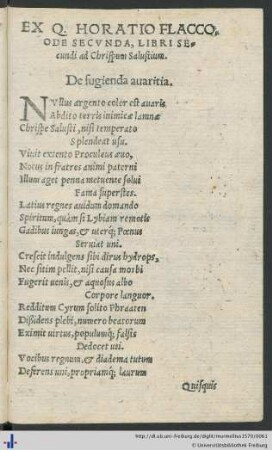 EX Q. HORATIO FLACCO,
ODE SECVNDA, LIBRI SE-
cundi ad Chrispum Salustium.
De fugienda avaritia.
NVllus argento color est avaris
Abdito terris inimice lamnæ
Chrispe Salusti, nisi temperato
Splendeat usu.
Viuit extento Proculeus æuo,
Notus in fratres animi paterni
Illum aget penna metuente solui
Fama superstes.
Latius regnes auidum domando
Spiritum, quàm si Lybiam remotis
Gadibus iungas, & uterq; Pœnus
Seruiat uni.
Crescit indulgens sibi dirus hydrops,
Nec sitim pellit, nisi causa morbi
Fugerit uenis, & aquosus albo
Corpore languor.
Redditum Cyrum solito Phraaten
Dissidens plebi, numero beatorum
Eximit uirtus, populumq; falsis
Dedocet uti.
Vocibus regnum, & diadema tutum
Deferens uni, propriamq; laurum
Quisquis
http://dl.ub.uni-freiburg.de/diglit/murmellius1570/0061
Universitätsbibliothek Freiburg